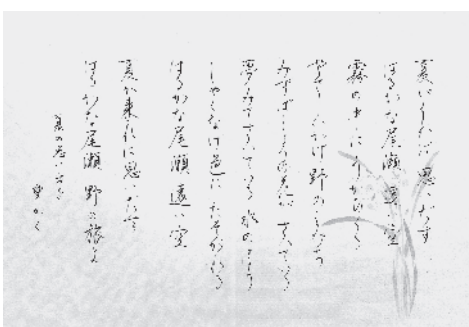 夏がくれば 思い出す
はるかな尾瀬 遠い空
霧の中に うかびくる
やさしい影 野の小径
水芭蕉の花が 咲いている
夢みて咲いている 水のほとり
しゃくなげ色に たそがれる
はるかな尾瀬 遠い空
夏が来れば 思い出す
はるかな尾瀬 野の旅よ
夏の思い出を
かく